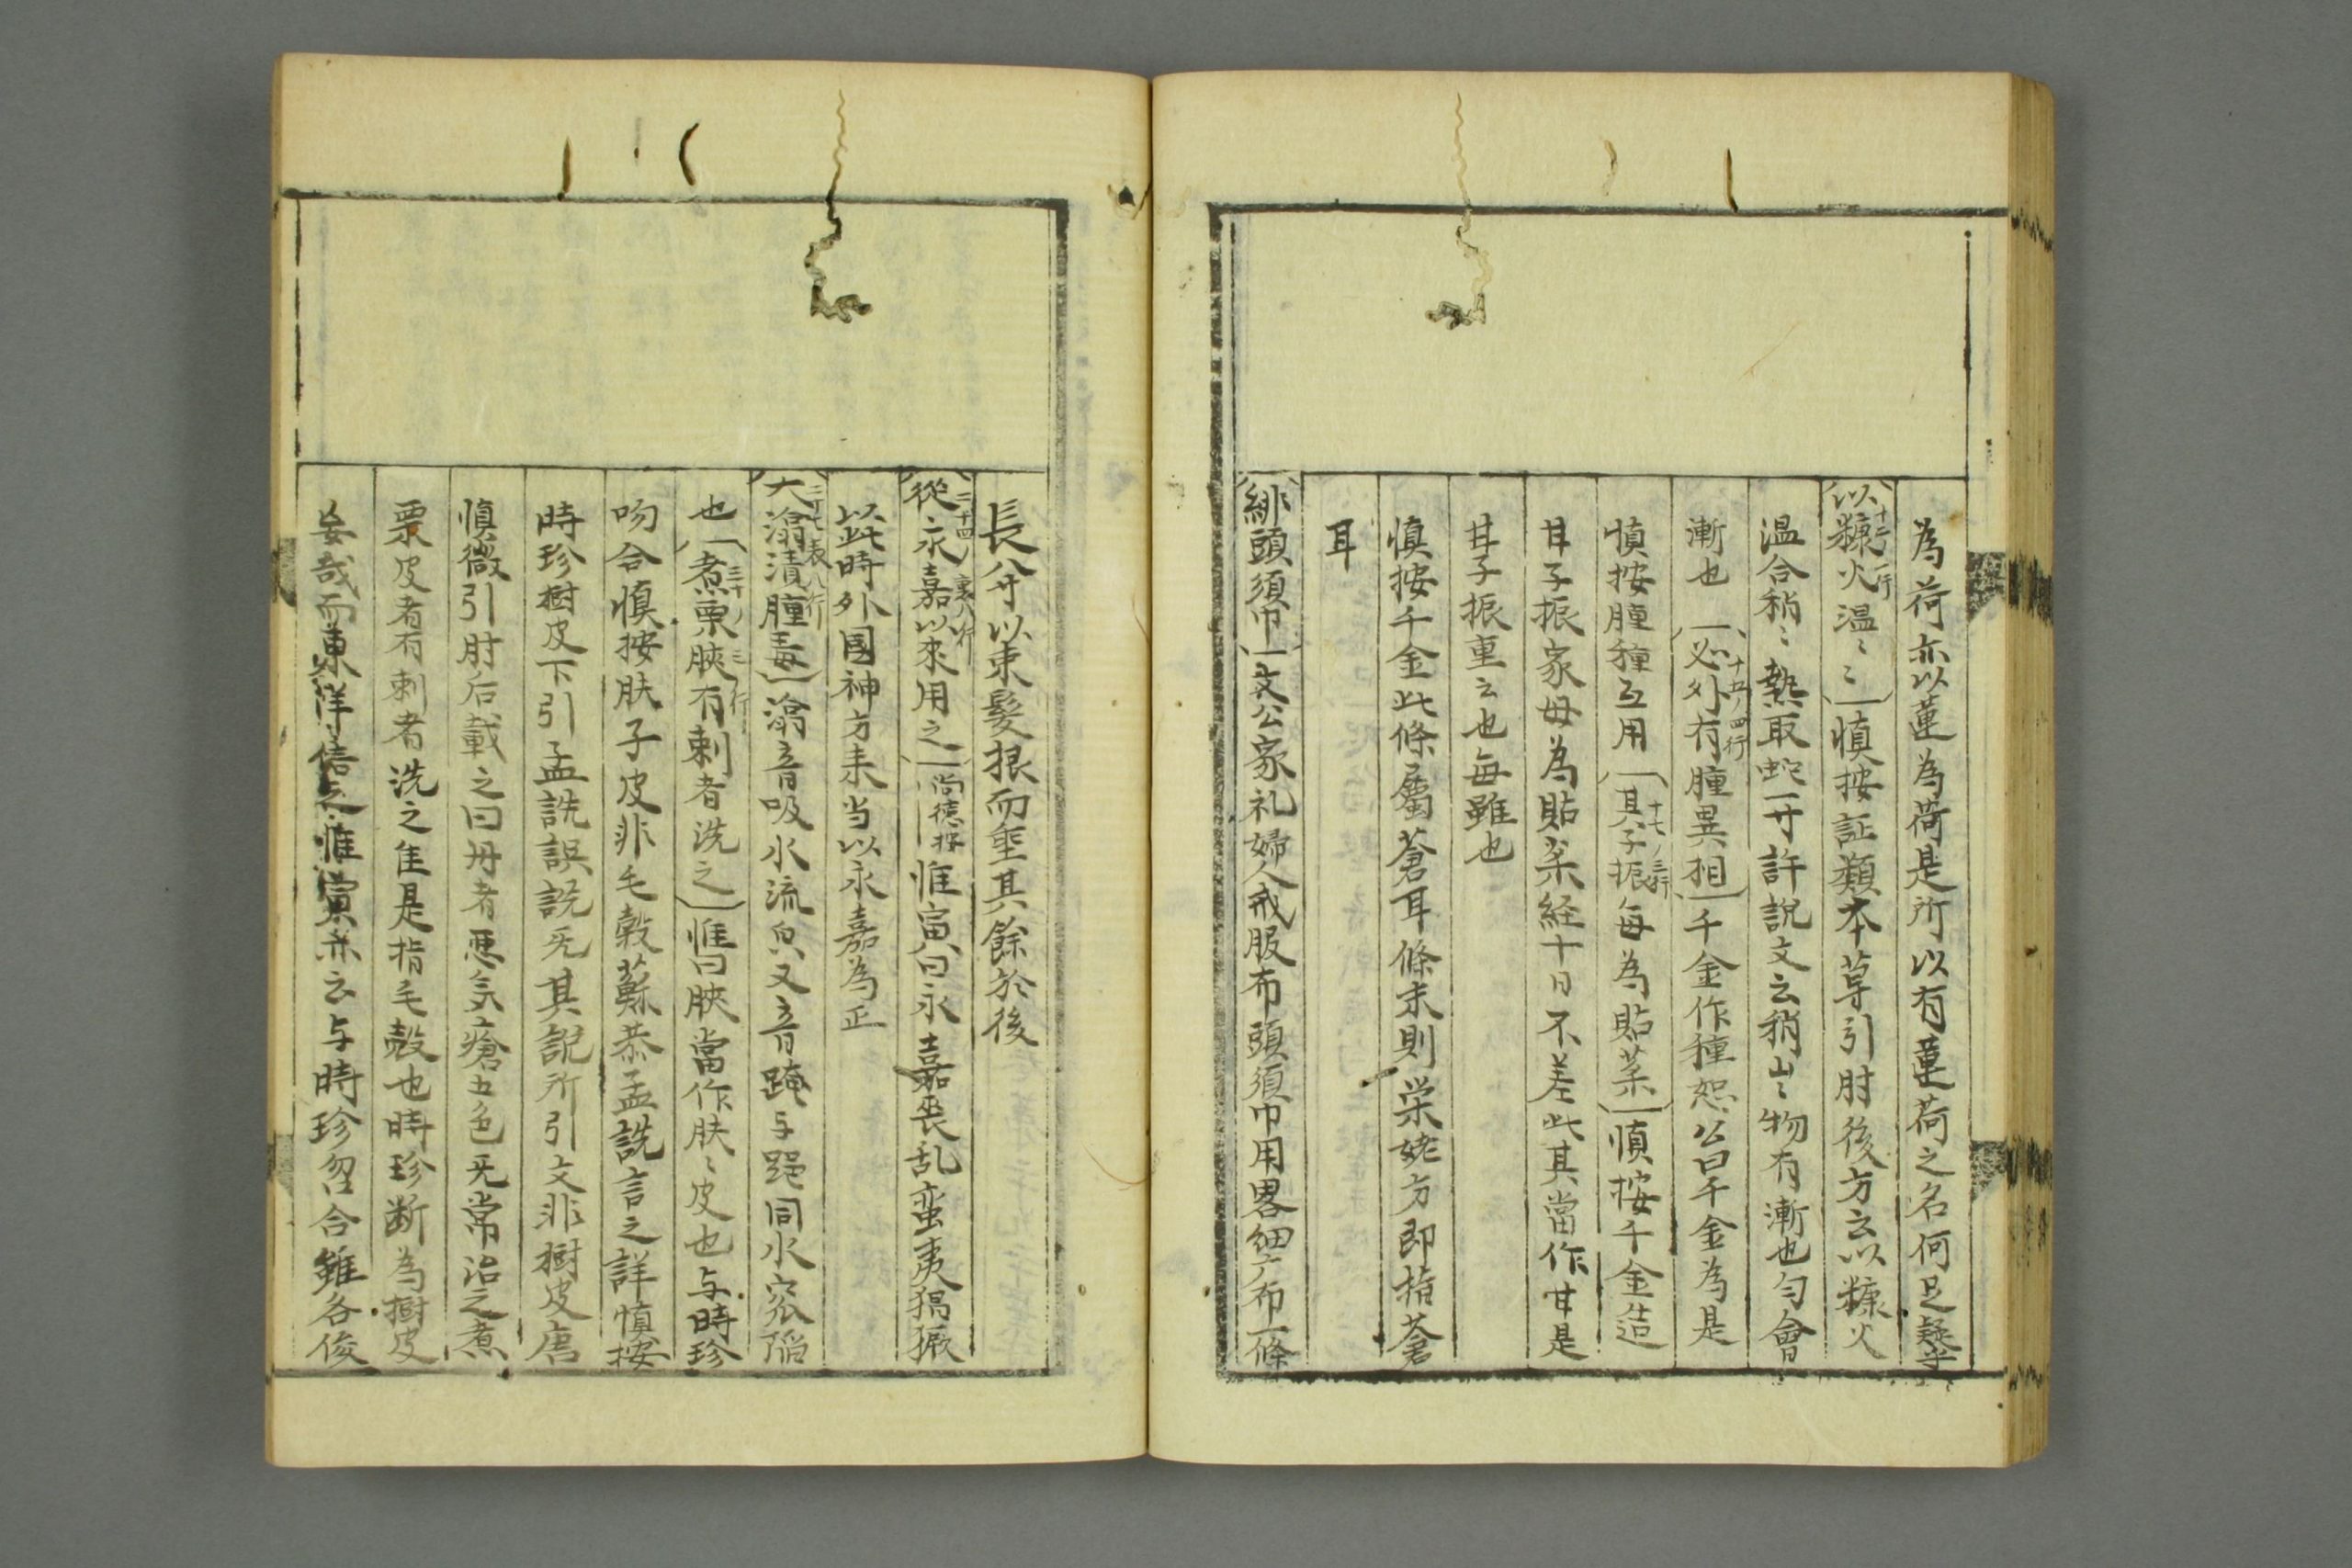 為荷亦以蓮為荷是所以有蓮荷之名何足疑乎
以糠火温〻 十二ノ一行 慎按証類本草引肘後方云以糠火
温合稍〻熱取蛇一寸許説文云稍出〻物有漸也匀會
漸也 必外有腫異相 十五ノ四行 千金作種恕公曰千金為是
慎按腫種互用 其子振每為貼菜 十七ノ三行 慎按千金造
甘子振家毋為貼菜経十日不差此其當作甘是
甘子振重云也每雖也
慎按千金此條屬蒼耳條末則栄姥方即指蒼
耳
緋頭須巾 文公家礼婦人戒服布頭須巾用畧細布一條
長八寸以束髮根而垂其餘於後
從永嘉以來用之 三十四ノ裏八行 尚德按 惟寅曰永嘉喪乱蛮夷猖獗
以此時外国神方来当以永嘉為正
大滃漬腫毒 三十七表八行 滃音吸水流皃又音踠与跽同水窊陥
也 煮栗䏮有刺者洗之 三十ノ三行 惟曰䏮當作肤〻皮也与時珍
吻合慎按肤子皮非毛榖蘇恭孟詵言之詳慎按
時珍樹皮下引孟詵誤説旡其説所引文非樹皮唐
慎微引肘后載之曰毋者悪気瘡五色旡常治之煮
栗皮者有刺者洗之隹是指毛殼也時珍断為樹皮
妄哉而東洋信之惟寅亦云与時珍吻合雖各俊